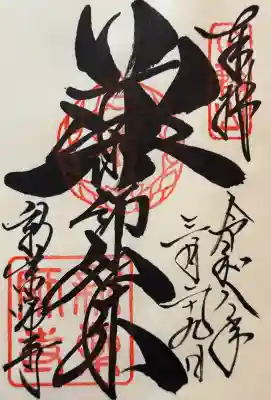 奉拝
令和八年
三月二十九日
薬師如来
新薬師寺